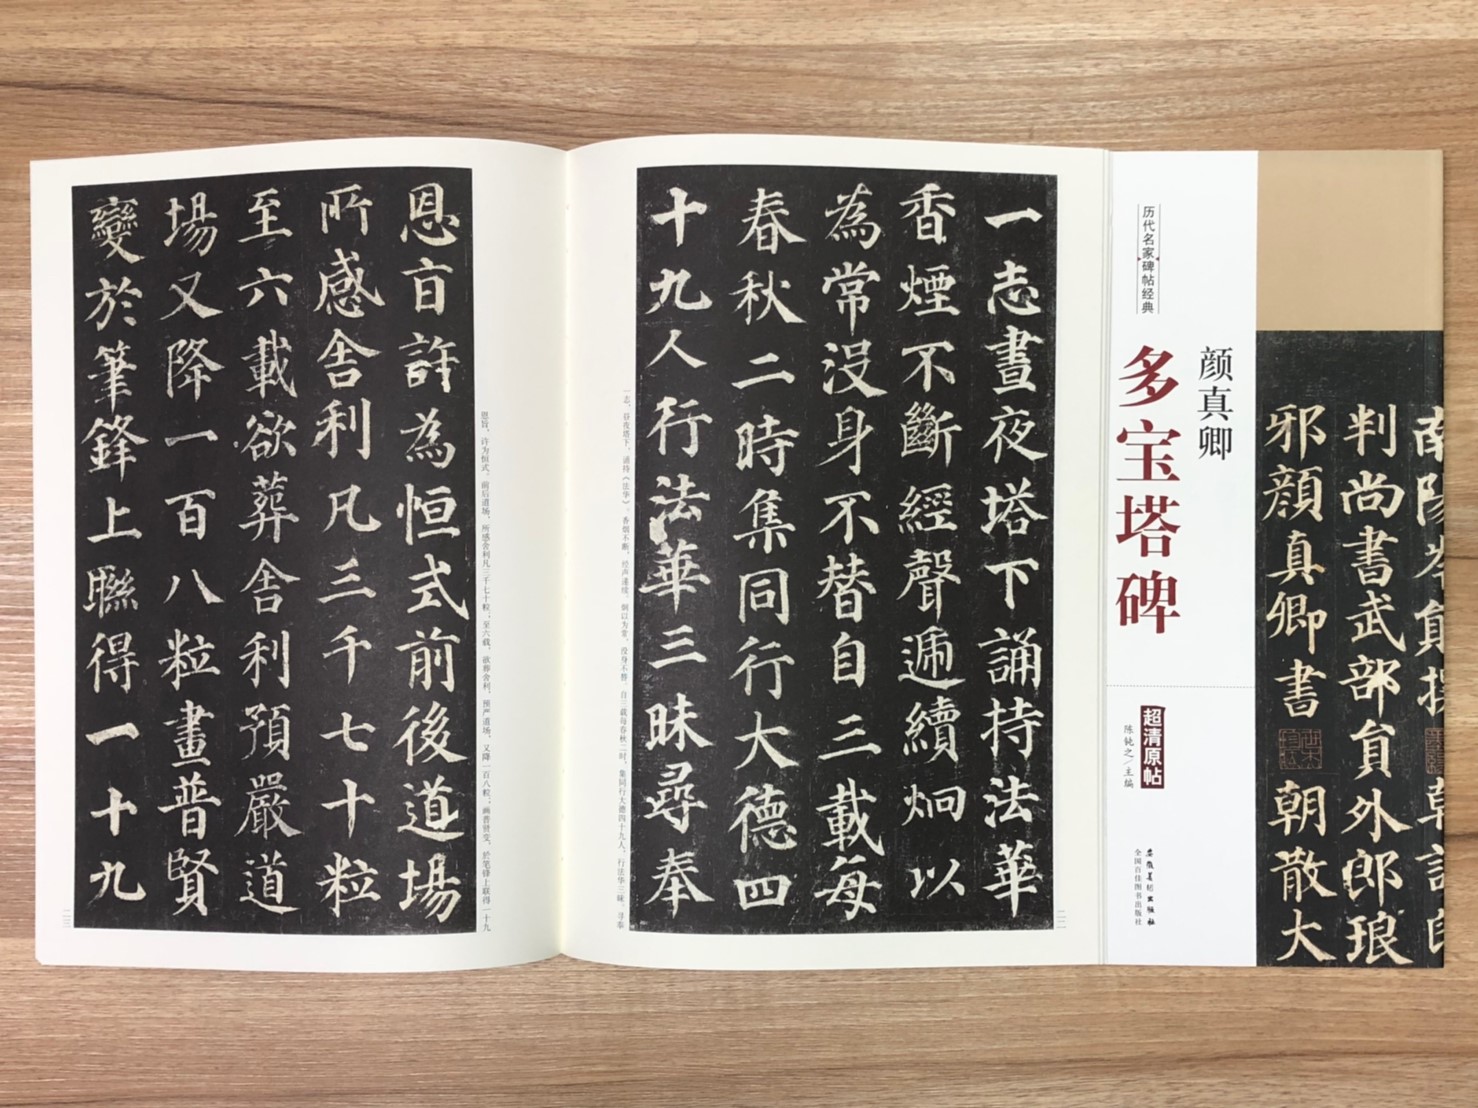 南陽岑勛撰 朝議郎
判尚書武部員外郎琅
邪顏真卿書 朝散大
历代名家碑帖经典
颜真卿
多宝塔碑
超清原帖
陈钝之/主编
安徽美术出版社
全国百佳图书出版社
一志晝夜塔下誦持法華
香煙不斷經聲遞續炯以
為常沒身不替自三載每
春秋二時集同行大德四
十九人行法華三昧尋奉
一志。昼夜塔下，诵持《法华》。香烟不断，经声递续，炯以为常，没身不替。自三载每春秋二时，集同行大德四十九人，行法华三昧。寻奉
二二
恩旨許為恒式前後道場
所感舍利凡三千七十粒
至六載欲葬舍利預嚴道
場又降一百八粒畫普賢
變於筆鋒上聯得一十九
恩旨，许为恒式。前后道场，所感舍利凡三千七十粒。至六载，欲葬舍利，预严道场，又降一百八粒。画普贤变，於笔锋上联得一十九
二三